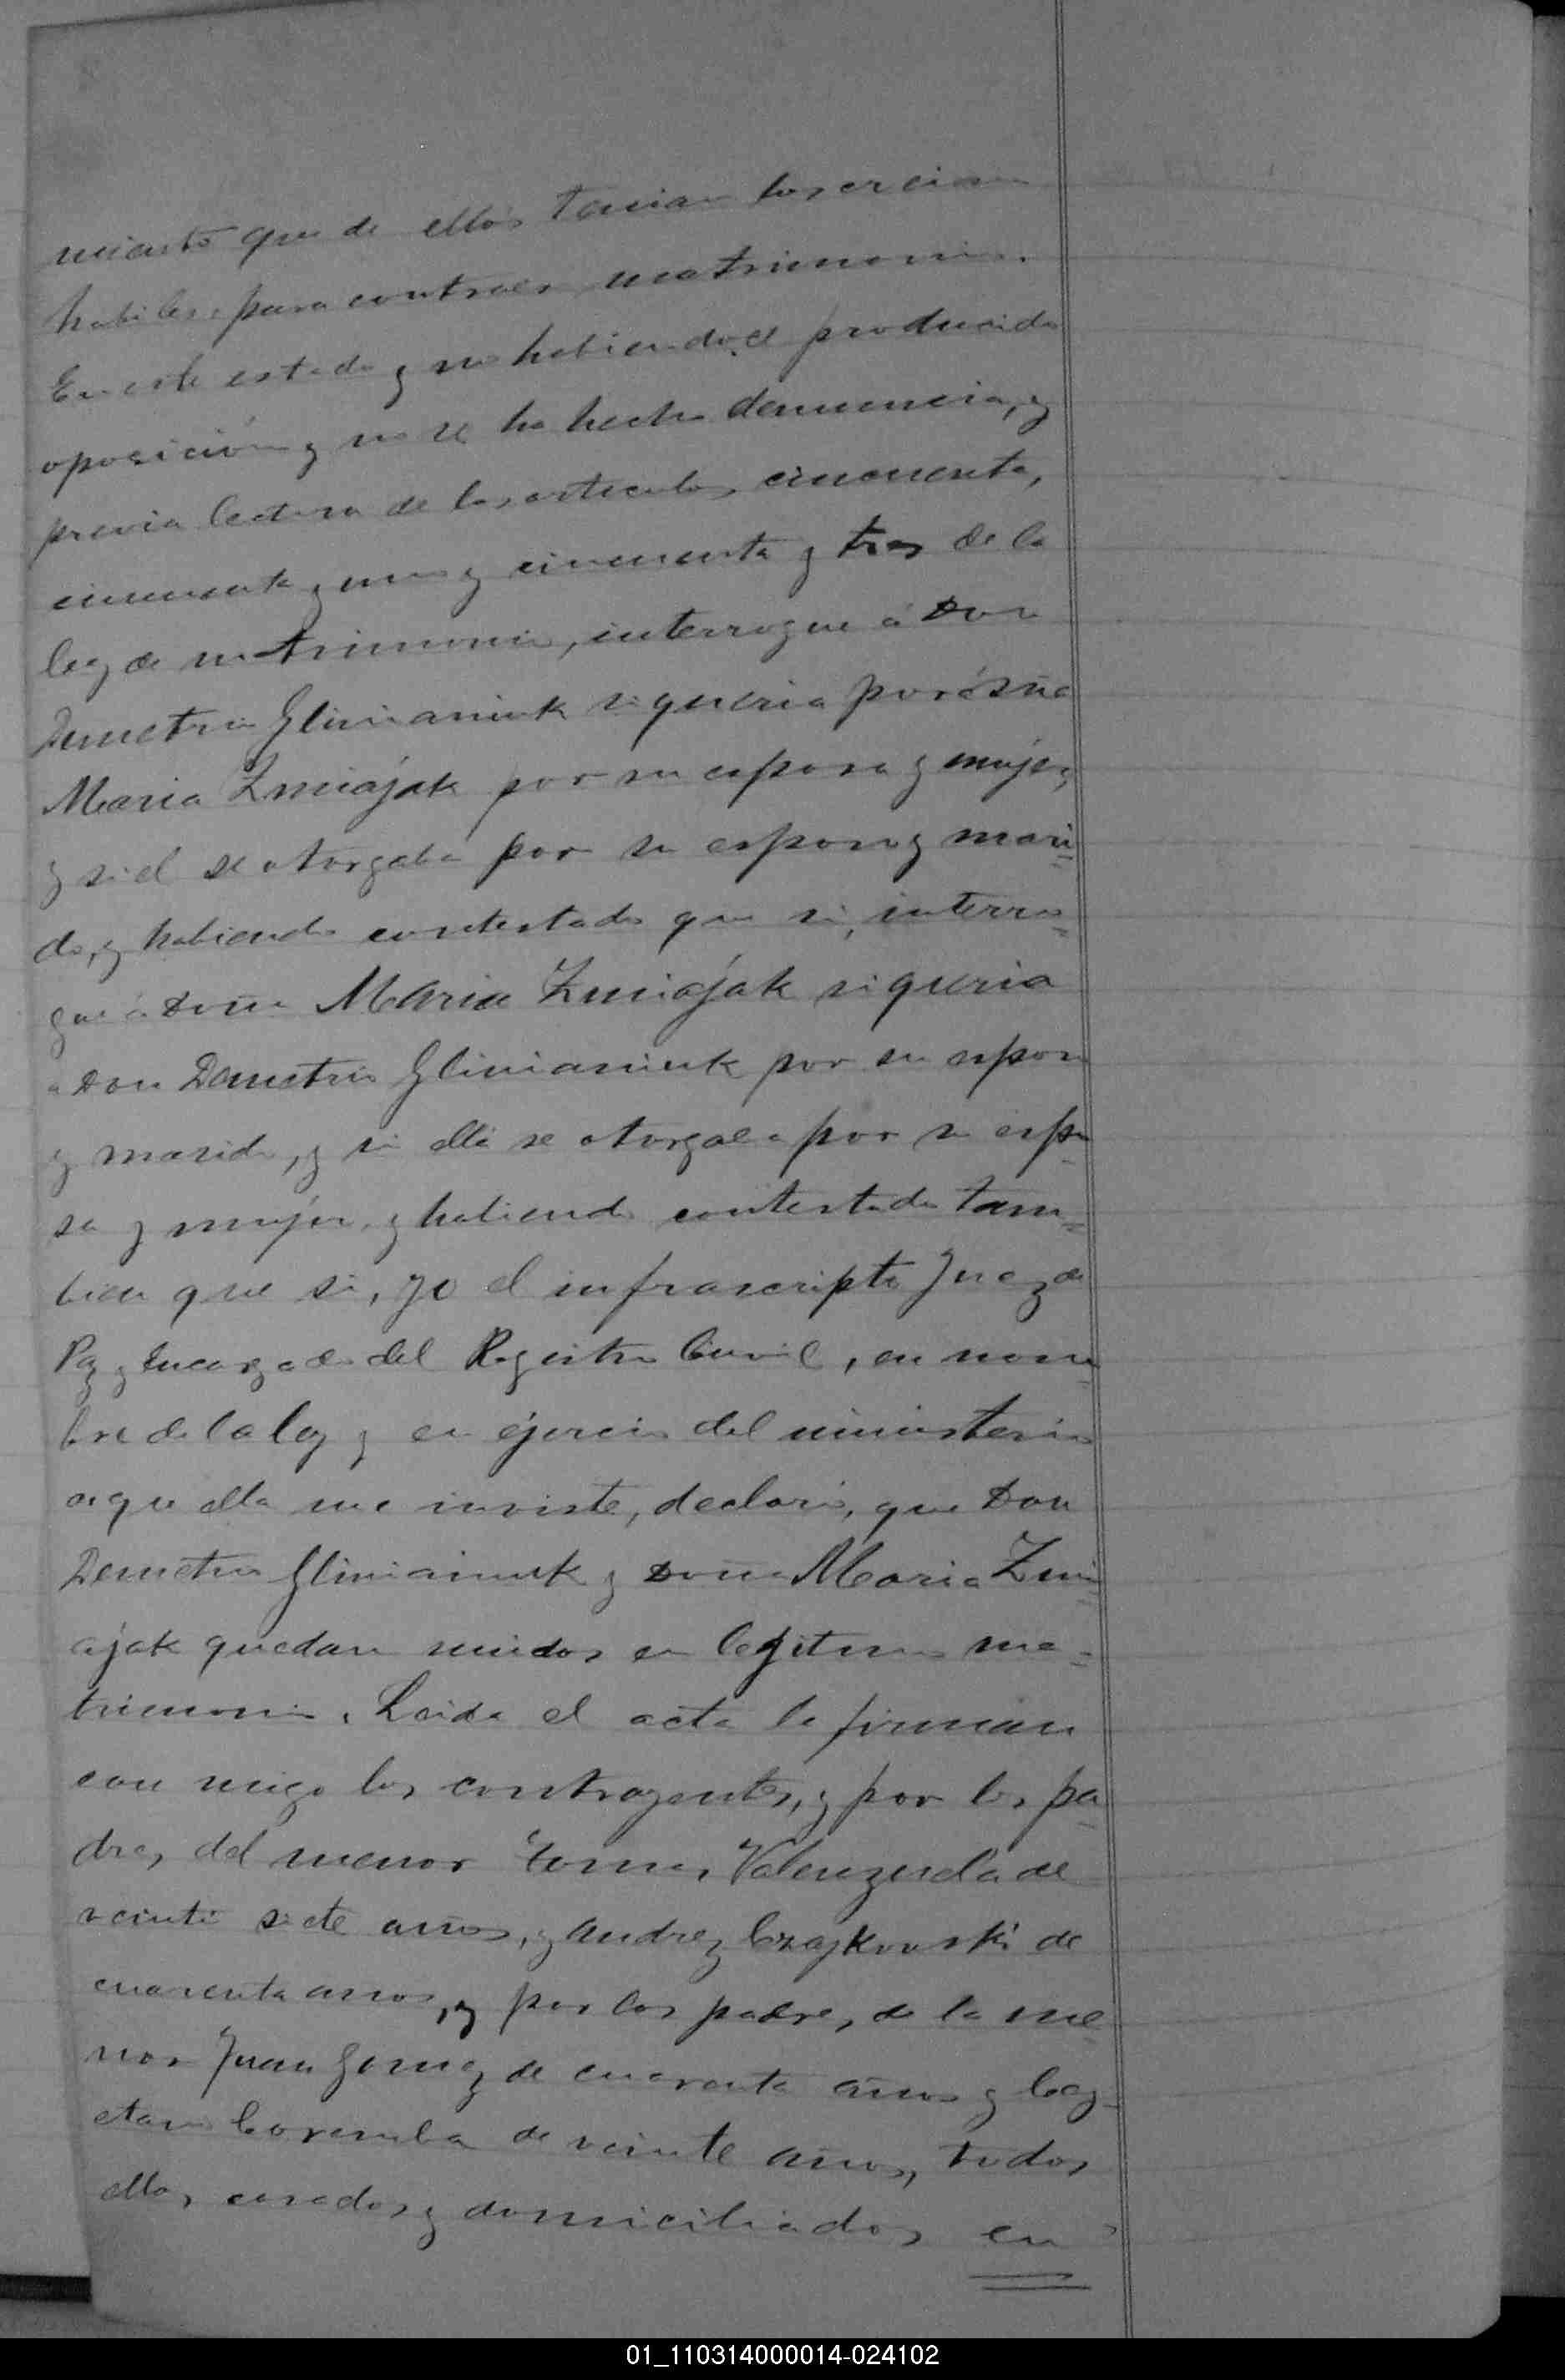 miento que de ellos tenian los creian
habiles para contraer matrimonio.
En este estado y no habiendose producido
oposición y no se ha hecho denuncia, y
previa lectura de los articulos cincuenta,
cincuenta y uno y cincuenta y tres de la
ley de matrimonio, interrogue á Don
Demetrio Glinianiuk si queria por á Dña
Maria Zmiajak por su esposa y mujer,
y si el se otorgaba por su esposo y mari=
do, y habiendo contestado que si, interro=
gue á Doña Maria Zmiajak si queria
a Don Demetrio Glinianiuk por su esposo
y marido, y si ella se otorgaba por su espo-
sa y mujer, y habiendo contestado tam=
bien que si, yo el infrascripto Juez de
Paz y Encargado del Registro Civil, en nom=
bre de la ley y en ejercio del ministerio
de que ella me inviste, declaro, que Don
Demetrio Glinianiuk y Doña Maria Zmi=
ajak quedan unidos en legitimo ma=
trimonio. Leida el acta la firman
con migo los contrayentes, y por los pa-
dres del menor Tomas Valenzuela de
veinti siete años, y Andrez Czajkowski de
cuarenta años, y por los padres de la me-
nor Juan Gomez de cuarenta años y Cay-
etano de veinte años, todos
ellos casados y domiciliados en
01_110314000014-024102